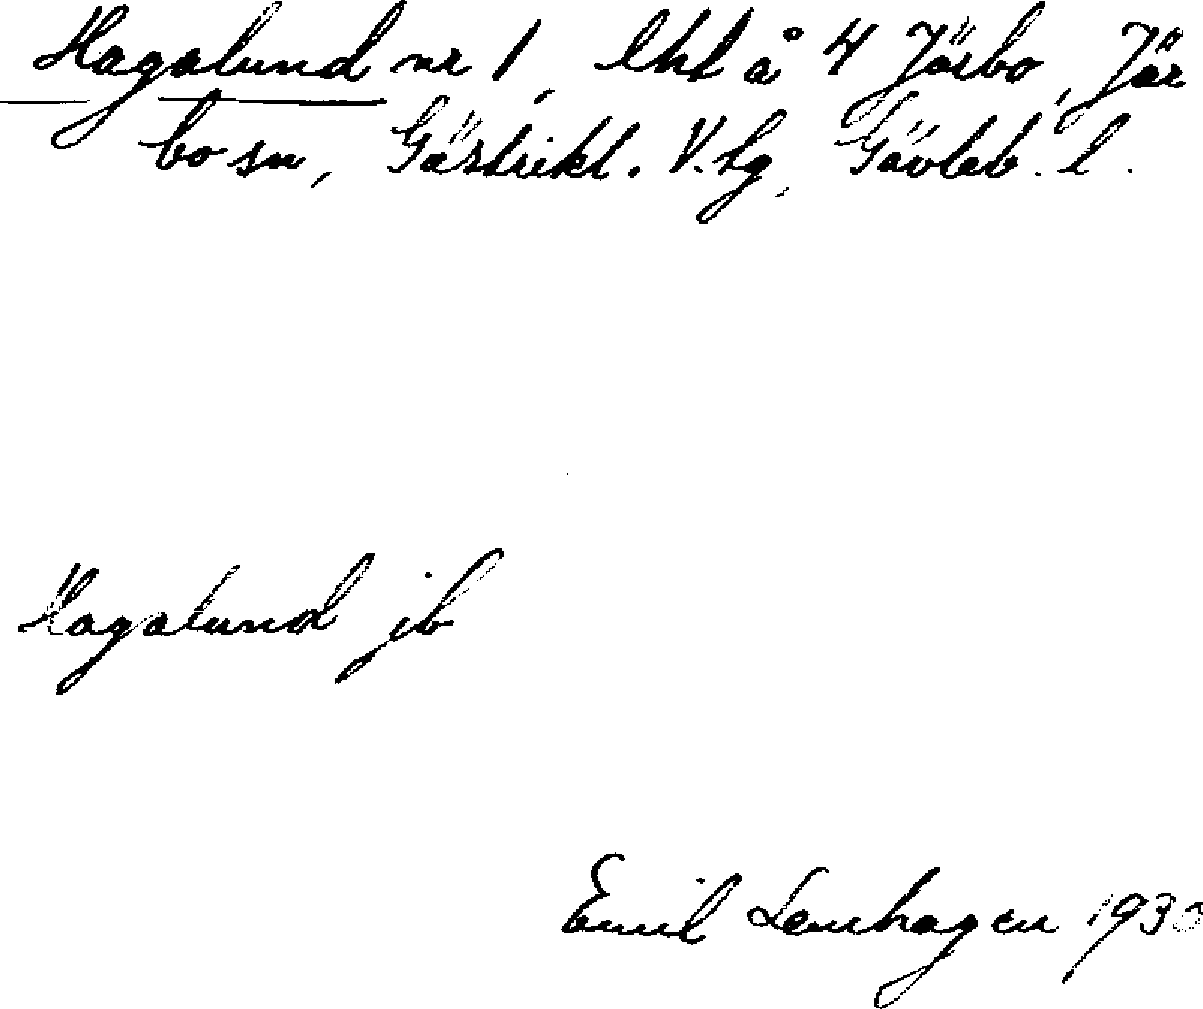 Hagalund nr 1, lht å 4 Järbo, Jär
bo sn, Gästrikl. V. tg, Gävleb. l.
Hagalund jb
Emil Lenhagen 1930